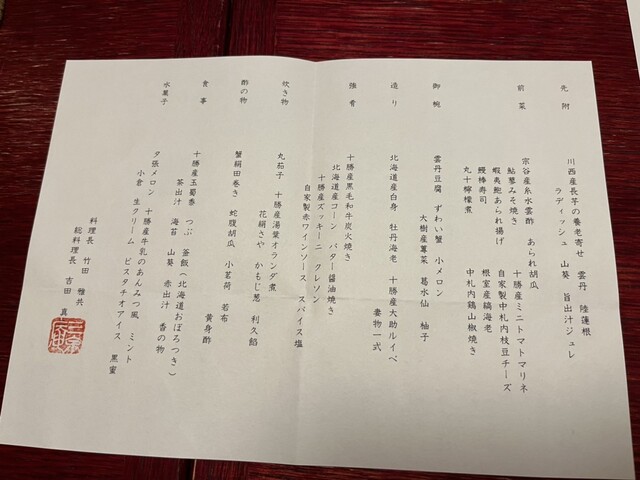 先附
川西産長芋の養老寄せ 雲丹 陸蓮根
ラディッシュ 山葵 旨出汁ジュレ
前菜
宗谷産糸水雲酢 あられ胡瓜
鮎蓼みそ焼き 十勝産ミニトマトマリネ
蝦夷鮑あられ揚げ 自家製中札内枝豆チーズ
鰻棒寿司 根室産縞海老
丸十檸檬煮 中札内鶏山椒焼き
御椀
雲丹豆腐 ずわい蟹 小メロン
大樹産蓴菜 葛水仙 柚子
造り
北海道産白身 牡丹海老 十勝産大助ルイベ
妻物一式
強肴
十勝産黒毛和牛炭火焼き
北海道産コーン バター醤油焼き
十勝産ズッキーニ クレソン
自家製赤ワインソース スパイス塩
炊き物
丸茄子 十勝産湯葉オランダ煮
花絹さや かもじ葱 利久餡
酢の物
蟹絹田巻き 蛇腹胡瓜 小茗荷 若布
黄身酢
食事
十勝産玉蜀黍 つぶ 釜飯(北海道おぼろつき)
茶出汁 海苔 山葵 赤出汁 香の物
水菓子
夕張メロン 十勝産牛乳のあんみつ風 ミント
小倉 生クリーム ピスタチオアイス 黒蜜
料理長 竹田 雅共
総料理長 吉田 真